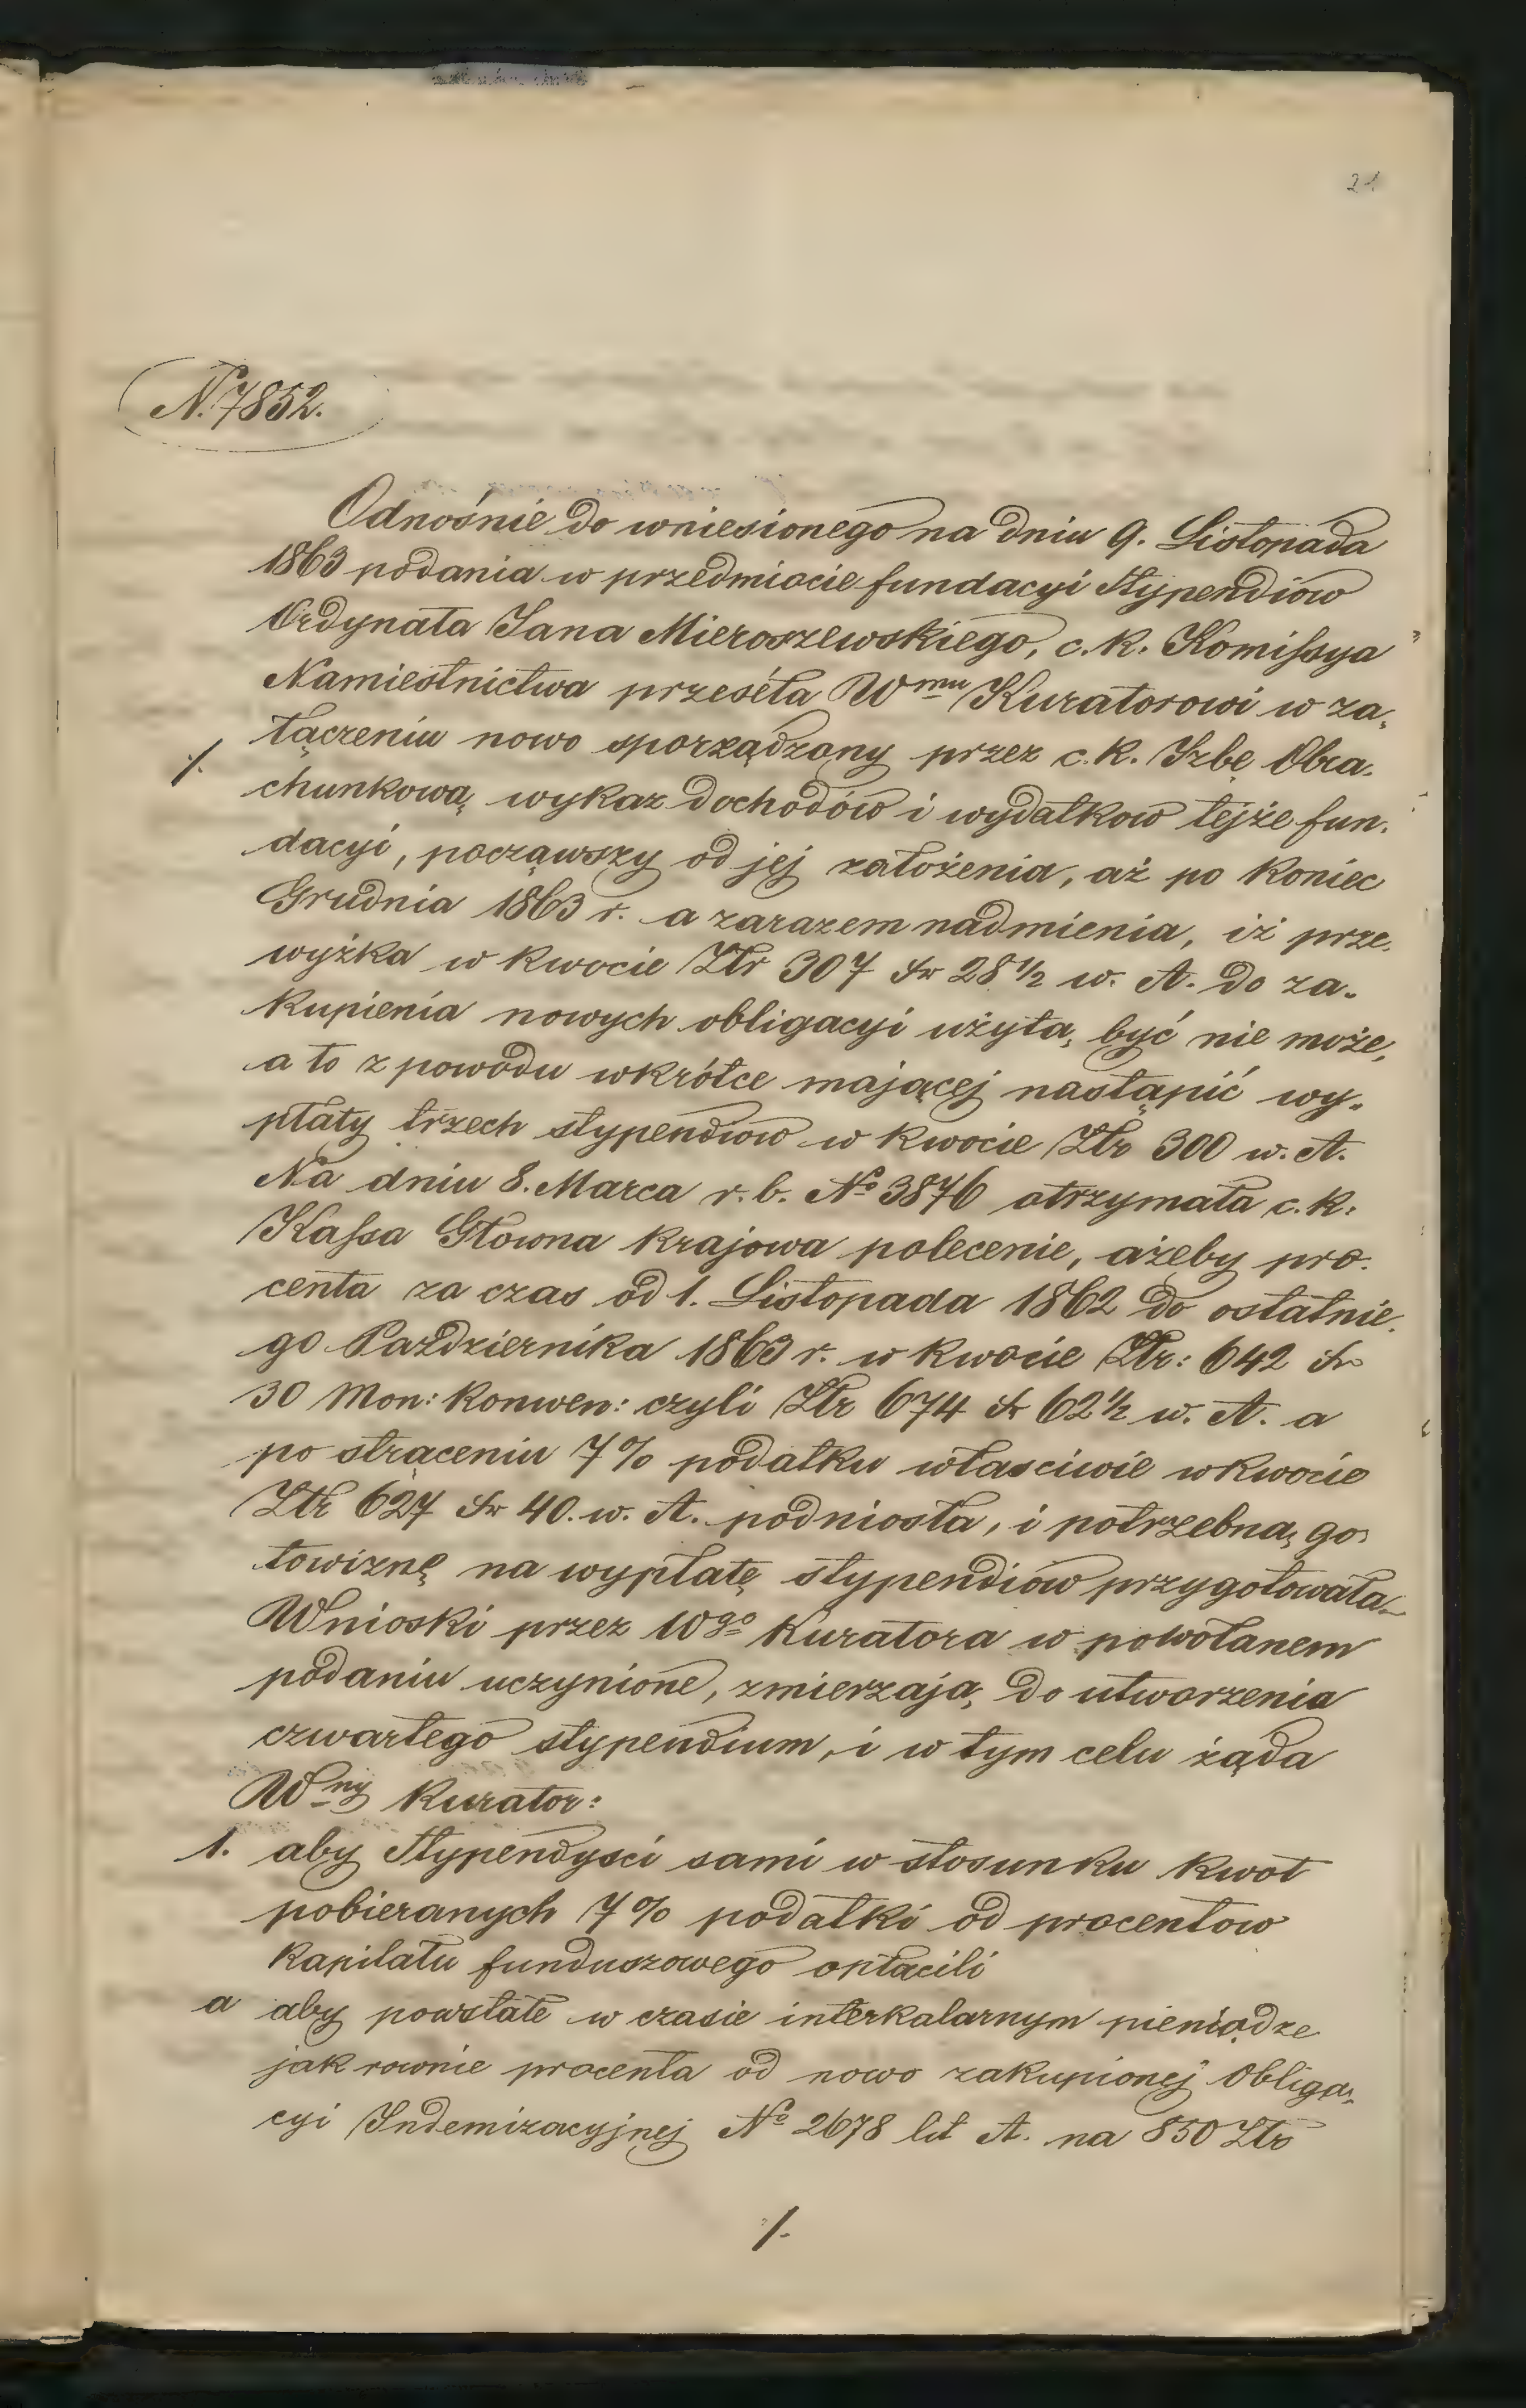 21
N. 7852.
Odnośnie do wniesionego na dniu 9. Listopada
1863 podania w przedmiocie fundacyi Stypendiów
Ordynata Jana Mieroszewskiego, c. k. Komissya
Namiestnictwa przeséła Wmu Kuratorowi w za,
łączeniu nowo sporządzony przez c. k. Izbę Obra.
./.
chunkową wykaz dochodów i wydatkow tejże fun.
dacyi, począwszy od jej założenia, aż po koniec
Grudnia 1863 r. a zarazem nadmienia, iż prze.
wyżka w kwocie Złr 307 kr 28 1/2 w. A. do za.
kupienia nowych obligacyi użytą być nie może,
a to z powodu wkrótce mającej nastąpić wy.
płaty trzech stypendiow w kwocie Złr 300 w. A.
Na dniu 8. Marca r. b. No 3876 otrzymała c. k.
Kassa Głowna krajowa polecenie, ażeby pro.
centa za czas od 1. Listopada 1862 do ostatnie.
go Października 1863 r. w kwocie Złr: 642 kr
30 Mon: Konwen: czyli Złr 674 kr 62 1/2 w. A. a
po strąceniu 7% podatku własciwie w kwocie
Złr 627 kr 40. w. A. podniosła, i potrzebną go
towiznę na wypłatę stypendiow przygotowała.
Wnioski przez Wgo Kuratora w powołanem
podaniu uczynione, zmierzają do utworzenia
czwartego stypendium, i w tym celu żąda
Wny Kurator:
1. aby Stypendysci sami w stosunku kwot
pobieranych 7% podatki od procentow
kapitału funduszowego opłacili
a aby powstałe w czasie interkalarnym pieniądze
jak rownie procenta od nowo zakupionej Obliga,
cyi Indemizacyjnej No 2678 lit A. na 850 Złr
./.